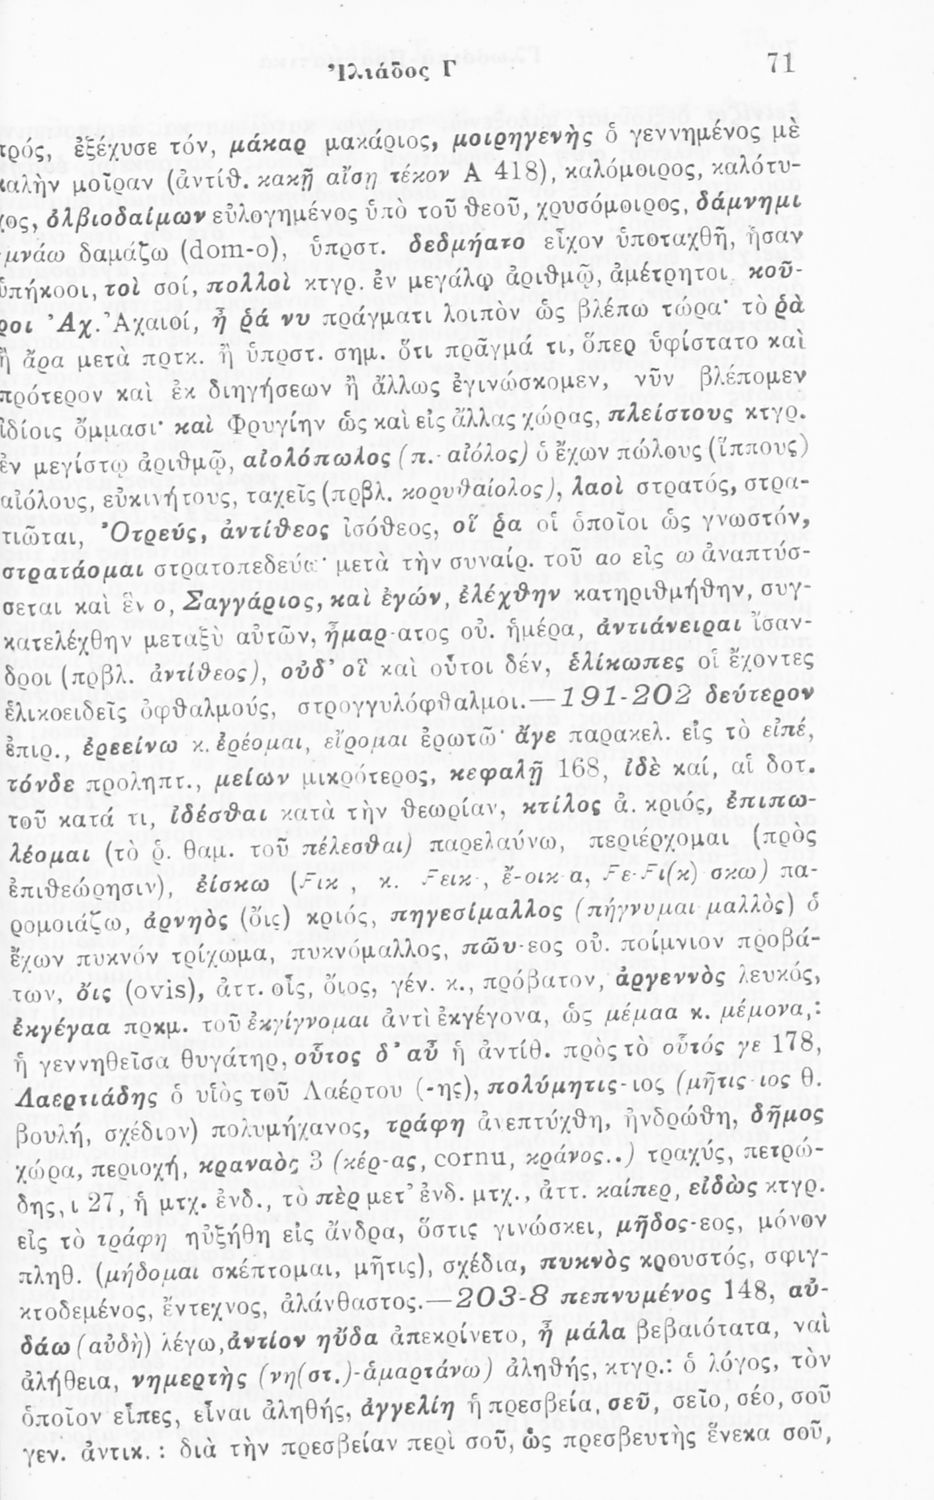 Ἰλιάδος Γ 71
τρός, ἐξέχυσε τόν, μάκαρ μακάριος, μοιρηγενὴς ὁ γεννημένος μὲ
καλὴν μοῖραν (ἀντίθ. κακῇ αἴσῃ τέκον Α 418), καλόμοιρος, καλότυ-
χος, ὀλβιοδαίμων εὐλογημένος ὑπὸ τοῦ θεοῦ, χρυσόμοιρος, δάμνημι
μνάω δαμάζω (dom-o), ὑπρστ. δεδμήατο εἶχον ὑποταχθῆ, ἦσαν
ὑπήκοοι, τοὶ σοί, πολλοὶ κτγρ. ἐν μεγάλῳ ἀριθμῷ, ἀμέτρητοι, κοῦ-
ροι Ἀχ. Ἀχαιοί, ἦ ῥά νυ πράγματι λοιπὸν ὡς βλέπω τώρα· τὸ ῥὰ
ἢ ἄρα μετὰ πρτκ. ἢ ὑπρστ. σημ. ὅτι πρᾶγμά τι, ὅπερ ὑφίστατο καὶ
πρότερον καὶ ἐκ διηγήσεων ἢ ἄλλως ἐγινώσκομεν, νῦν βλέπομεν
ἰδίοις ὄμμασι· καὶ Φρυγίην ὡς καὶ εἰς ἄλλας χώρας, πλείστους κτγρ.
ἐν μεγίστῳ ἀριθμῷ, αἰολόπωλος (π. αἰόλος) ὁ ἔχων πώλους (ἵππους)
αἰόλους, εὐκινήτους, ταχεῖς (πρβλ. κορυθαίολος), λαοὶ στρατός, στρα-
τιῶται, Ὀτρεύς, ἀντίθεος ἰσόθεος, οἵ ῥα οἱ ὁποῖοι ὡς γνωστόν,
στρατάομαι στρατοπεδεύω· μετὰ τὴν συναίρ. τοῦ αο εἰς ω ἀναπτύσ-
σεται καὶ ἓν ο, Σαγγάριος, καὶ ἐγών, ἐλέχθην κατηριθμήθην, συγ-
κατελέχθην μεταξὺ αὐτῶν, ἦμαρ-ατος οὐ. ἡμέρα, ἀντιάνειραι ἴσαν-
δροι (πρβλ. ἀντίθεος), οὐδ' οἳ καὶ οὗτοι δέν, ἑλίκωπες οἱ ἔχοντες
ἑλικοειδεῖς ὀφθαλμούς, στρογγυλόφθαλμοι.—191-202 δεύτερον
ἐπιρ., ἐρεείνω κ. ἐρέομαι, εἴρομαι ἐρωτῶ· ἄγε παρακελ. εἰς τὸ εἰπέ,
τόνδε προληπτ., μείων μικρότερος, κεφαλῇ 168, ἰδὲ καί, αἱ δοτ.
τοῦ κατά τι, ἰδέσθαι κατὰ τὴν θεωρίαν, κτίλος ἀ. κριός, ἐπιπω-
λέομαι (τὸ ῥ. θαμ. τοῦ πέλεσθαι) παρελαύνω, περιέρχομαι (πρὸς
ἐπιθεώρησιν), ἐίσκω (ϝικ , κ. ϝεικ-, ἔ-οικ α, ϝε-ϝί(κ) σκω) πα-
ρομοιάζω, ἀρνηὸς (ὄϊς) κριός, πηγεσίμαλλος (πήγνυμαι μαλλὸς) ὁ
ἔχων πυκνὸν τρίχωμα, πυκνόμαλλος, πῶυ-εος οὐ. ποίμνιον προβά-
των, ὄις (ovis), ἀττ. οἶς, ὄιος, γέν. κ., πρόβατον, ἀργεννὸς λευκός,
ἐκγέγαα πρκμ. τοῦ ἐκγίγνομαι ἀντὶ ἐκγέγονα, ὡς μέμαα κ. μέμονα,:
ἡ γεννηθεῖσα θυγάτηρ, οὗτος δ' αὖ ἡ ἀντίθ. πρὸς τὸ οὗτός γε 178,
Λαερτιάδης ὁ υἱὸς τοῦ Λαέρτου (-ης), πολύμητις-ιος (μῆτις ιος θ.
βουλή, σχέδιον) πολυμήχανος, τράφη ἀνεπτύχθη, ἠνδρώθη, δῆμος
χώρα, περιοχή, κραναὸς 3 (κέρ-ας, cornu, κράνος..) τραχύς, πετρώ-
δης, ι 27, ἡ μτχ. ἐνδ., τὸ πὲρ μετ' ἐνδ. μτχ., ἀττ. καίπερ, εἰδὼς κτγρ.
εἰς τὸ τράφη ηὐξήθη εἰς ἄνδρα, ὅστις γινώσκει, μῆδος-εος, μόνον
πληθ. (μήδομαι σκέπτομαι, μῆτις), σχέδια, πυκνὸς κρουστός, σφιγ-
κτοδεμένος, ἔντεχνος, ἀλάνθαστος.—203-8 πεπνυμένος 148, αὐ-
δάω (αὐδὴ) λέγω, ἀντίον ηὔδα ἀπεκρίνετο, ἦ μάλα βεβαιότατα, ναὶ
ἀλήθεια, νημερτὴς (νη(στ.)-ἁμαρτάνω) ἀληθής, κτγρ.: ὁ λόγος, τὸν
ὁποῖον εἶπες, εἶναι ἀληθής, ἀγγελίη ἡ πρεσβεία, σεῦ, σεῖο, σέο, σοῦ
γεν. ἀντικ. : διὰ τὴν πρεσβείαν περὶ σοῦ, ὡς πρεσβευτὴς ἕνεκα σοῦ,